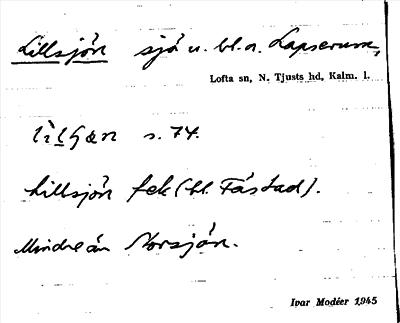 Lillsjön sjö u. bl. a. Lapserum,
Lofta sn, N. Tjusts hd, Kalm. l.
s. 74.
Lillsjön fek (bl. Fåstad).
Mindre än Norsjön.
Ivar Modéer 1945